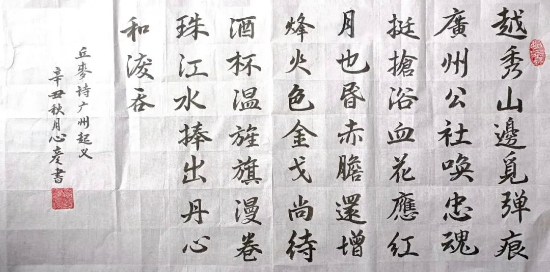 越秀山邊覓彈痕
廣州公社喚忠魂
挺搶浴血花應紅
月也昏赤膽還增
烽火色金戈尚待
酒杯温旌旗漫卷
珠江水捧出丹心
和淚吞
丘麥诗广州起义
辛丑秋月心彦書